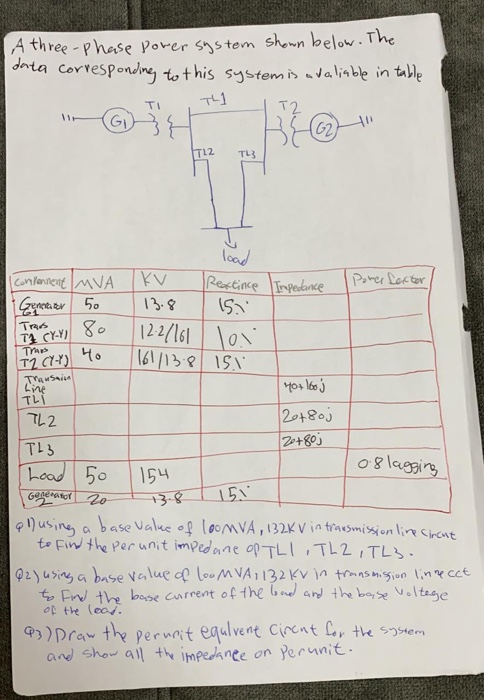 A three-phase power system shown below. The
data corresponding to this system is avaliable in table
T1 TL1 T2
G1 G2
TL2 TL3
load
Component MVA KV Reactince Impedance Power factor
Generator G1 50 13.8 15%
Trans T1 (Y-Y) 80 12.2/161 10%
Trans T2 (Y-Y) 40 161/13.8 15%
Line
TL1 40+160j
TL2 20+80j
TL3 20+80j
Load 50 154 0.8 lagging
Generator 2 20 13.8 15%
Q1) using a base value of 100MVA, 132KV in transmission line
to Find the per unit impedane of TL1, TL2, TL3.
Q2) using a base value of 100 MVA, 132 KV in transmission line cct
to Find the base current of the load and the base voltage
of the load.
Q3) Draw the perunit equlvent for the system
and show all the impedance on perunit.